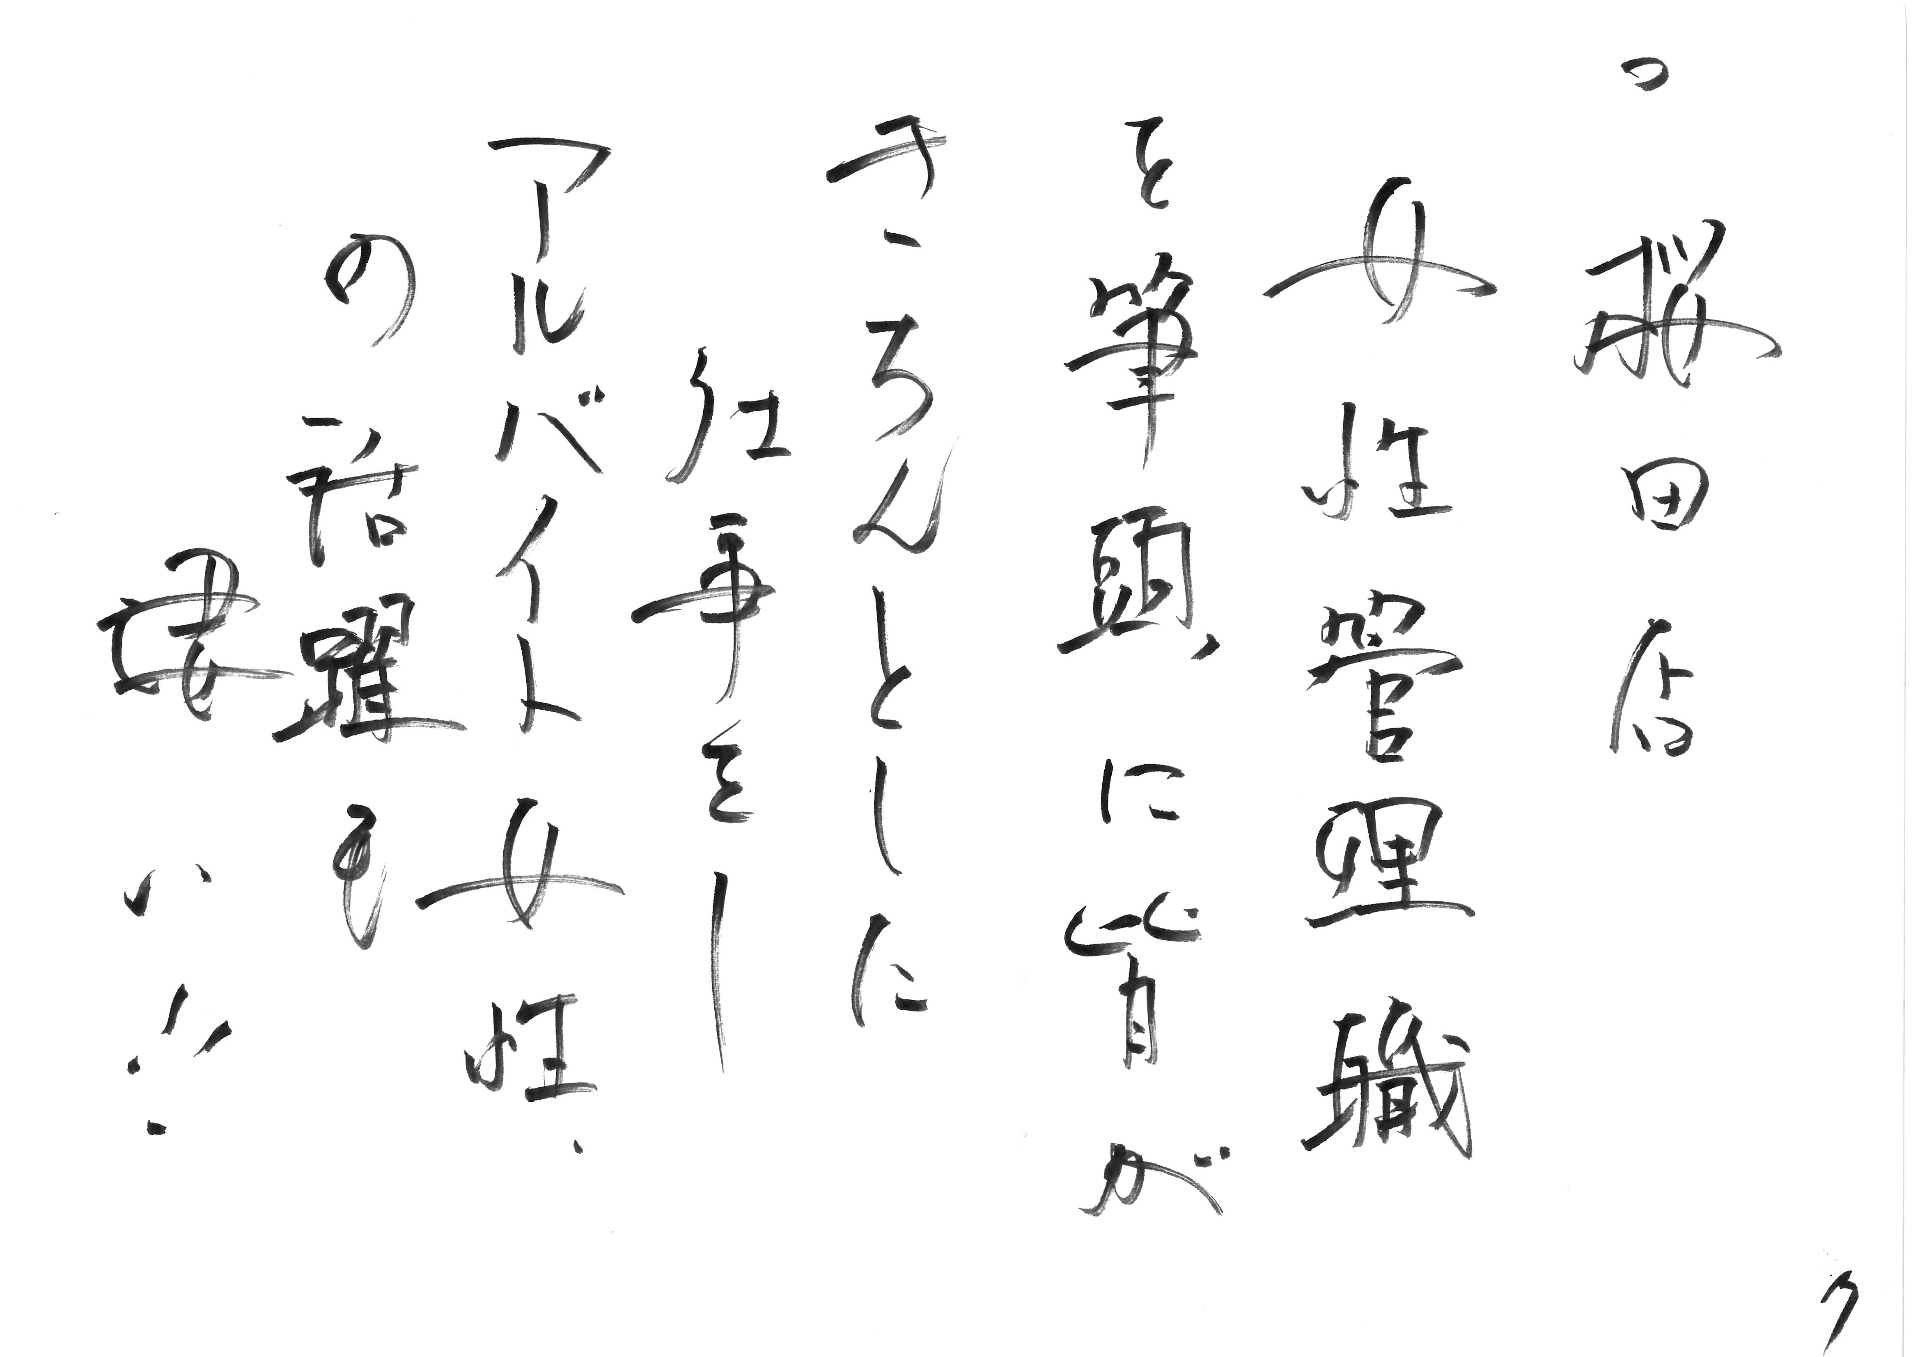 。桜田店
女性管理職
を筆頭、に皆が
きちんとした
仕事をし
アルバイト女性、
の活躍も
凄い!!
7